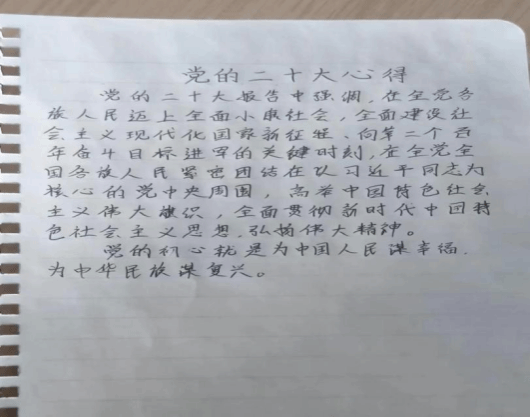 党的二十大心得
党的二十大报告中强调，在全党各
族人民迈上全面小康社会，全面建设社
会主义现代化国家新征程、向第二个百
年奋斗目标进军的关键时刻，在全党全
国各族人民紧密团结在以习近平同志为
核心的党中央周围，高举中国特色社会
主义伟大旗识，全面贯彻新时代中国特
色社会主义思想，弘扬伟大精神。
党的初心就是为中国人民谋幸福，
为中华民族谋复兴。